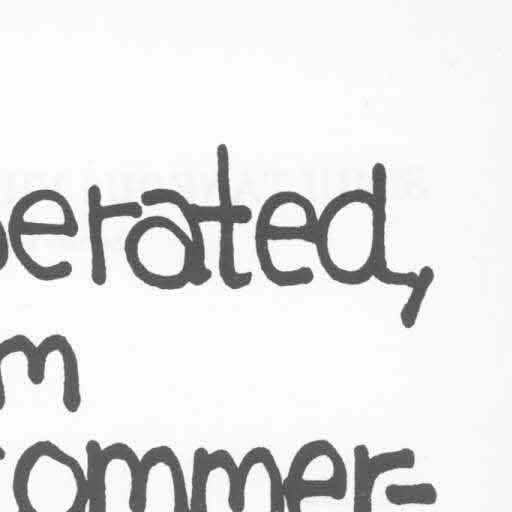 erated,
m
ommer-